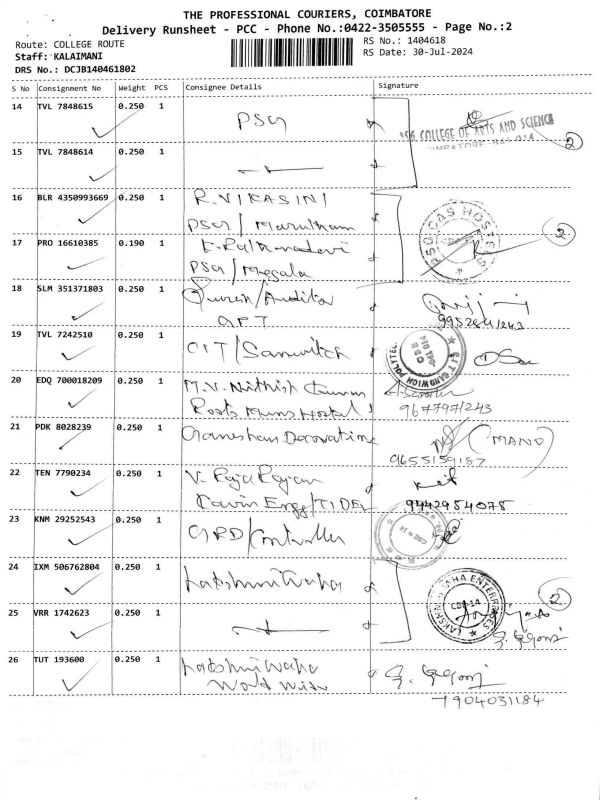 THE PROFESSIONAL COURIERS, COIMBATORE
Delivery Runsheet - PCC - Phone No.:0422-3505555 - Page No.:2
Route: COLLEGE ROUTE
RS No.: 1404618
Staff: KALAIMANI
RS Date: 30-Jul-2024
DRS No.: DCJB140461802
S No Consignment No Weight PCS Consignee Details Signature
14 TVL 7848615 0.250 1 PSG
PSG COLLEGE OF ARTS AND SCIENCE
2
15 TVL 7848614 0.250 1
16 BLR 4350993669 0.250 1 R. VIKASINI
PSG/Marutham
PSG CAS HOSTELS
2
17 PRO 16610385 0.190 1
PSG/Megala
18 SLM 351371803 0.250 1
GPT
9952841243
19 TVL 7242510 0.250 1 CIT/Sanwitch
CIT SANDWICH POLYTEC
CBE
641 014
20 EDQ 700018209 0.250 1 M.V. Nithish Kumar
Roots Mens Hostel
9677971243
21 PDK 8028239 0.250 1 Ganeshan Decorations
(MANO)
9655159187
22 TEN 7790234 0.250 1 V. Raja Rajan
Kavin Engg/TIDEL
9442954075
23 KNM 29252543 0.250 1 CIRD/Controller
24 IXM 506762804 0.250 1 Lakshmi Waha
LAKSHMI WAHA ENTERPRISES
CBE-14
2
25 VRR 1742623 0.250 1
26 TUT 193600 0.250 1 Lakshmi Waha
World Wise
7904031184